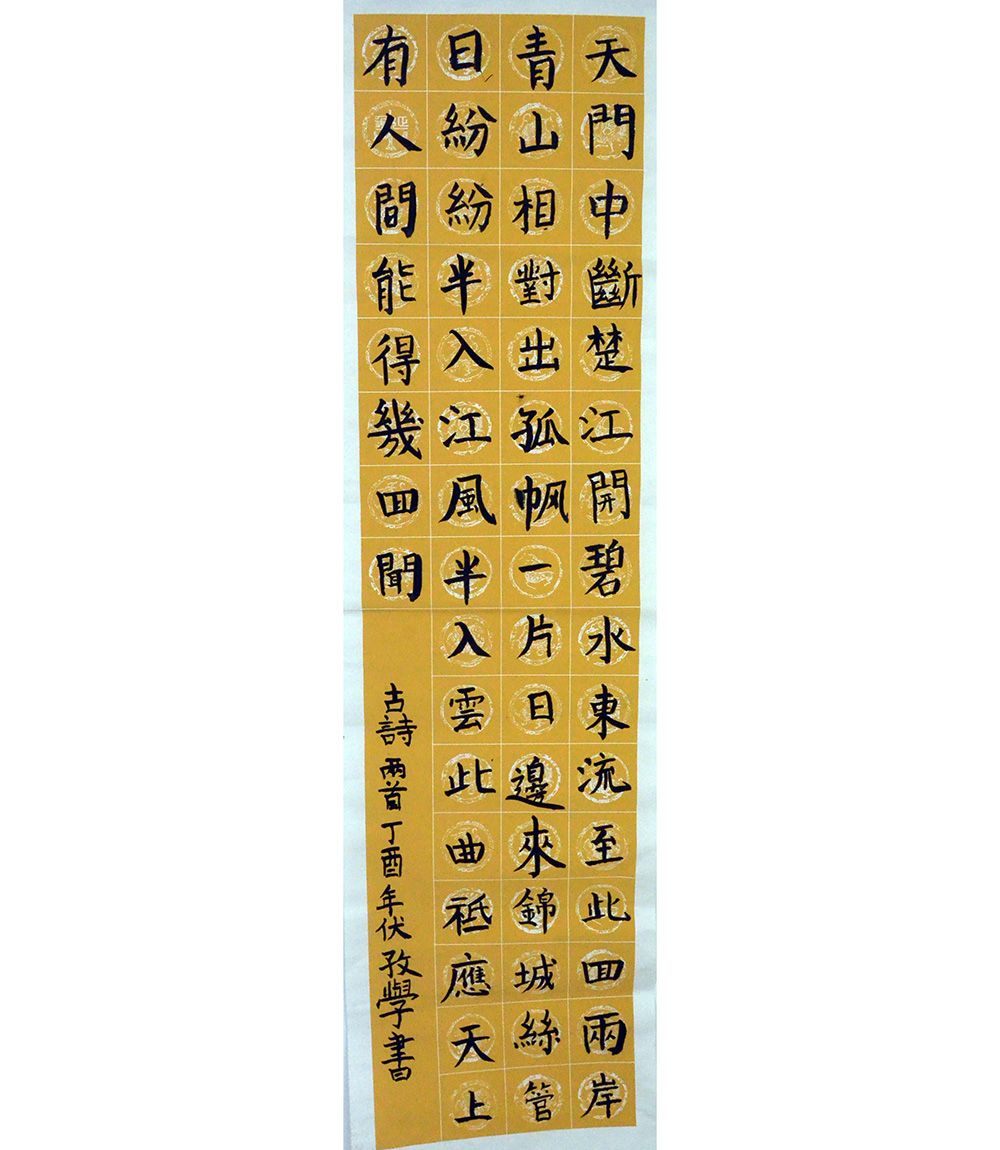 天門中斷楚江開碧水東流至此回兩岸
青山相對出孤帆一片日邊來錦城絲管
日紛紛半入江風半入雲此曲祗應天上
有人間能得幾回聞
古詩兩首丁酉年伏孜學書